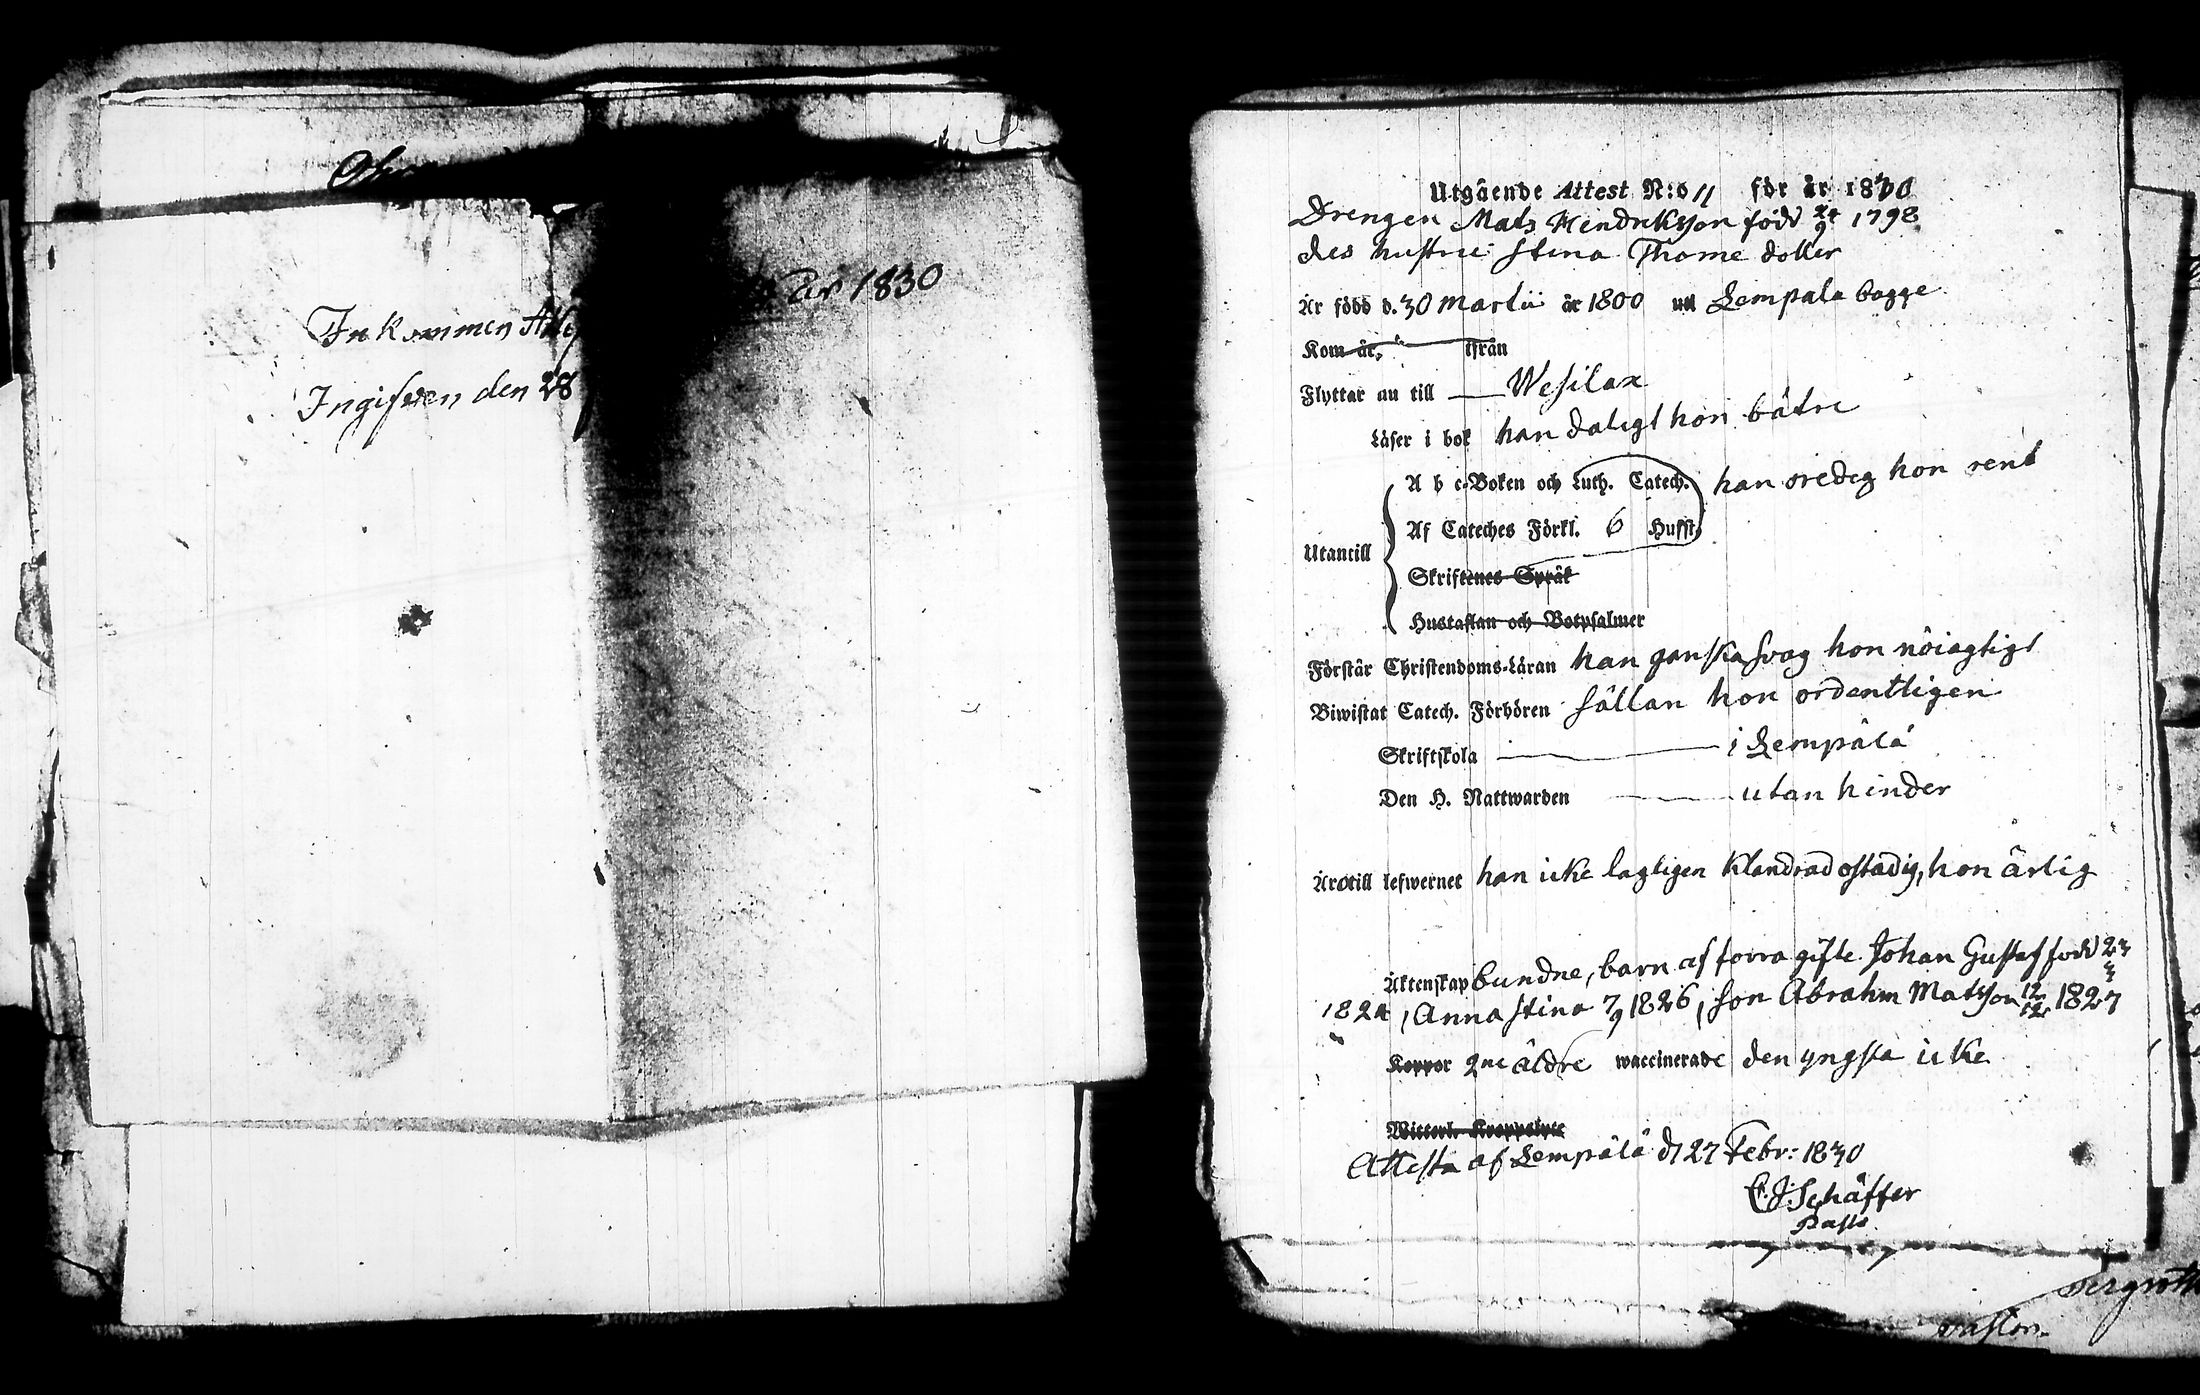 år 1830
Inkommen Att
Ingifven den 28
Utgående Attest N:o 11 för år 1830
Drengen Mats Hendriksson född 24/9 1798
des hustru Stina Thome dotter
Är född d. 30 Martii år 1800 uti Lempälä bägge
Kom år, ifrån
Flyttar nu till Wesilax
Läser i bok han daligt hon bätre
A b c-Boken och Luth. Catech. han oredig hon rent
Af Cateches Förkl. 6 Hufst.
Utantill
Skriftenes Språk
Hustaflan och Botpsalmer
Förstår Christendoms-Läran han ganska svag hon nöiagtigt
Biwistat Catech. Förhören sällan hon ordentligen
Skriftskola i Lempälä
Den H. Nattwarden utan hinder
Äro till lefwernet han icke lagligen klandrad ostadig, hon ärlig
Äktenskap bundne, barn af förra gifte Johan Gustaf född 23/3
1824, Anna Stina 7/9 1826, son Abraham Matsson 12/12 1827
Koppor 2ne äldre waccinerade den yngsta icke
Witterl. Kroppslyte
Attesta af Lempälä d 27 Febr: 1830
C.J. Schäffer
Past:
Bergroth
Pastor.